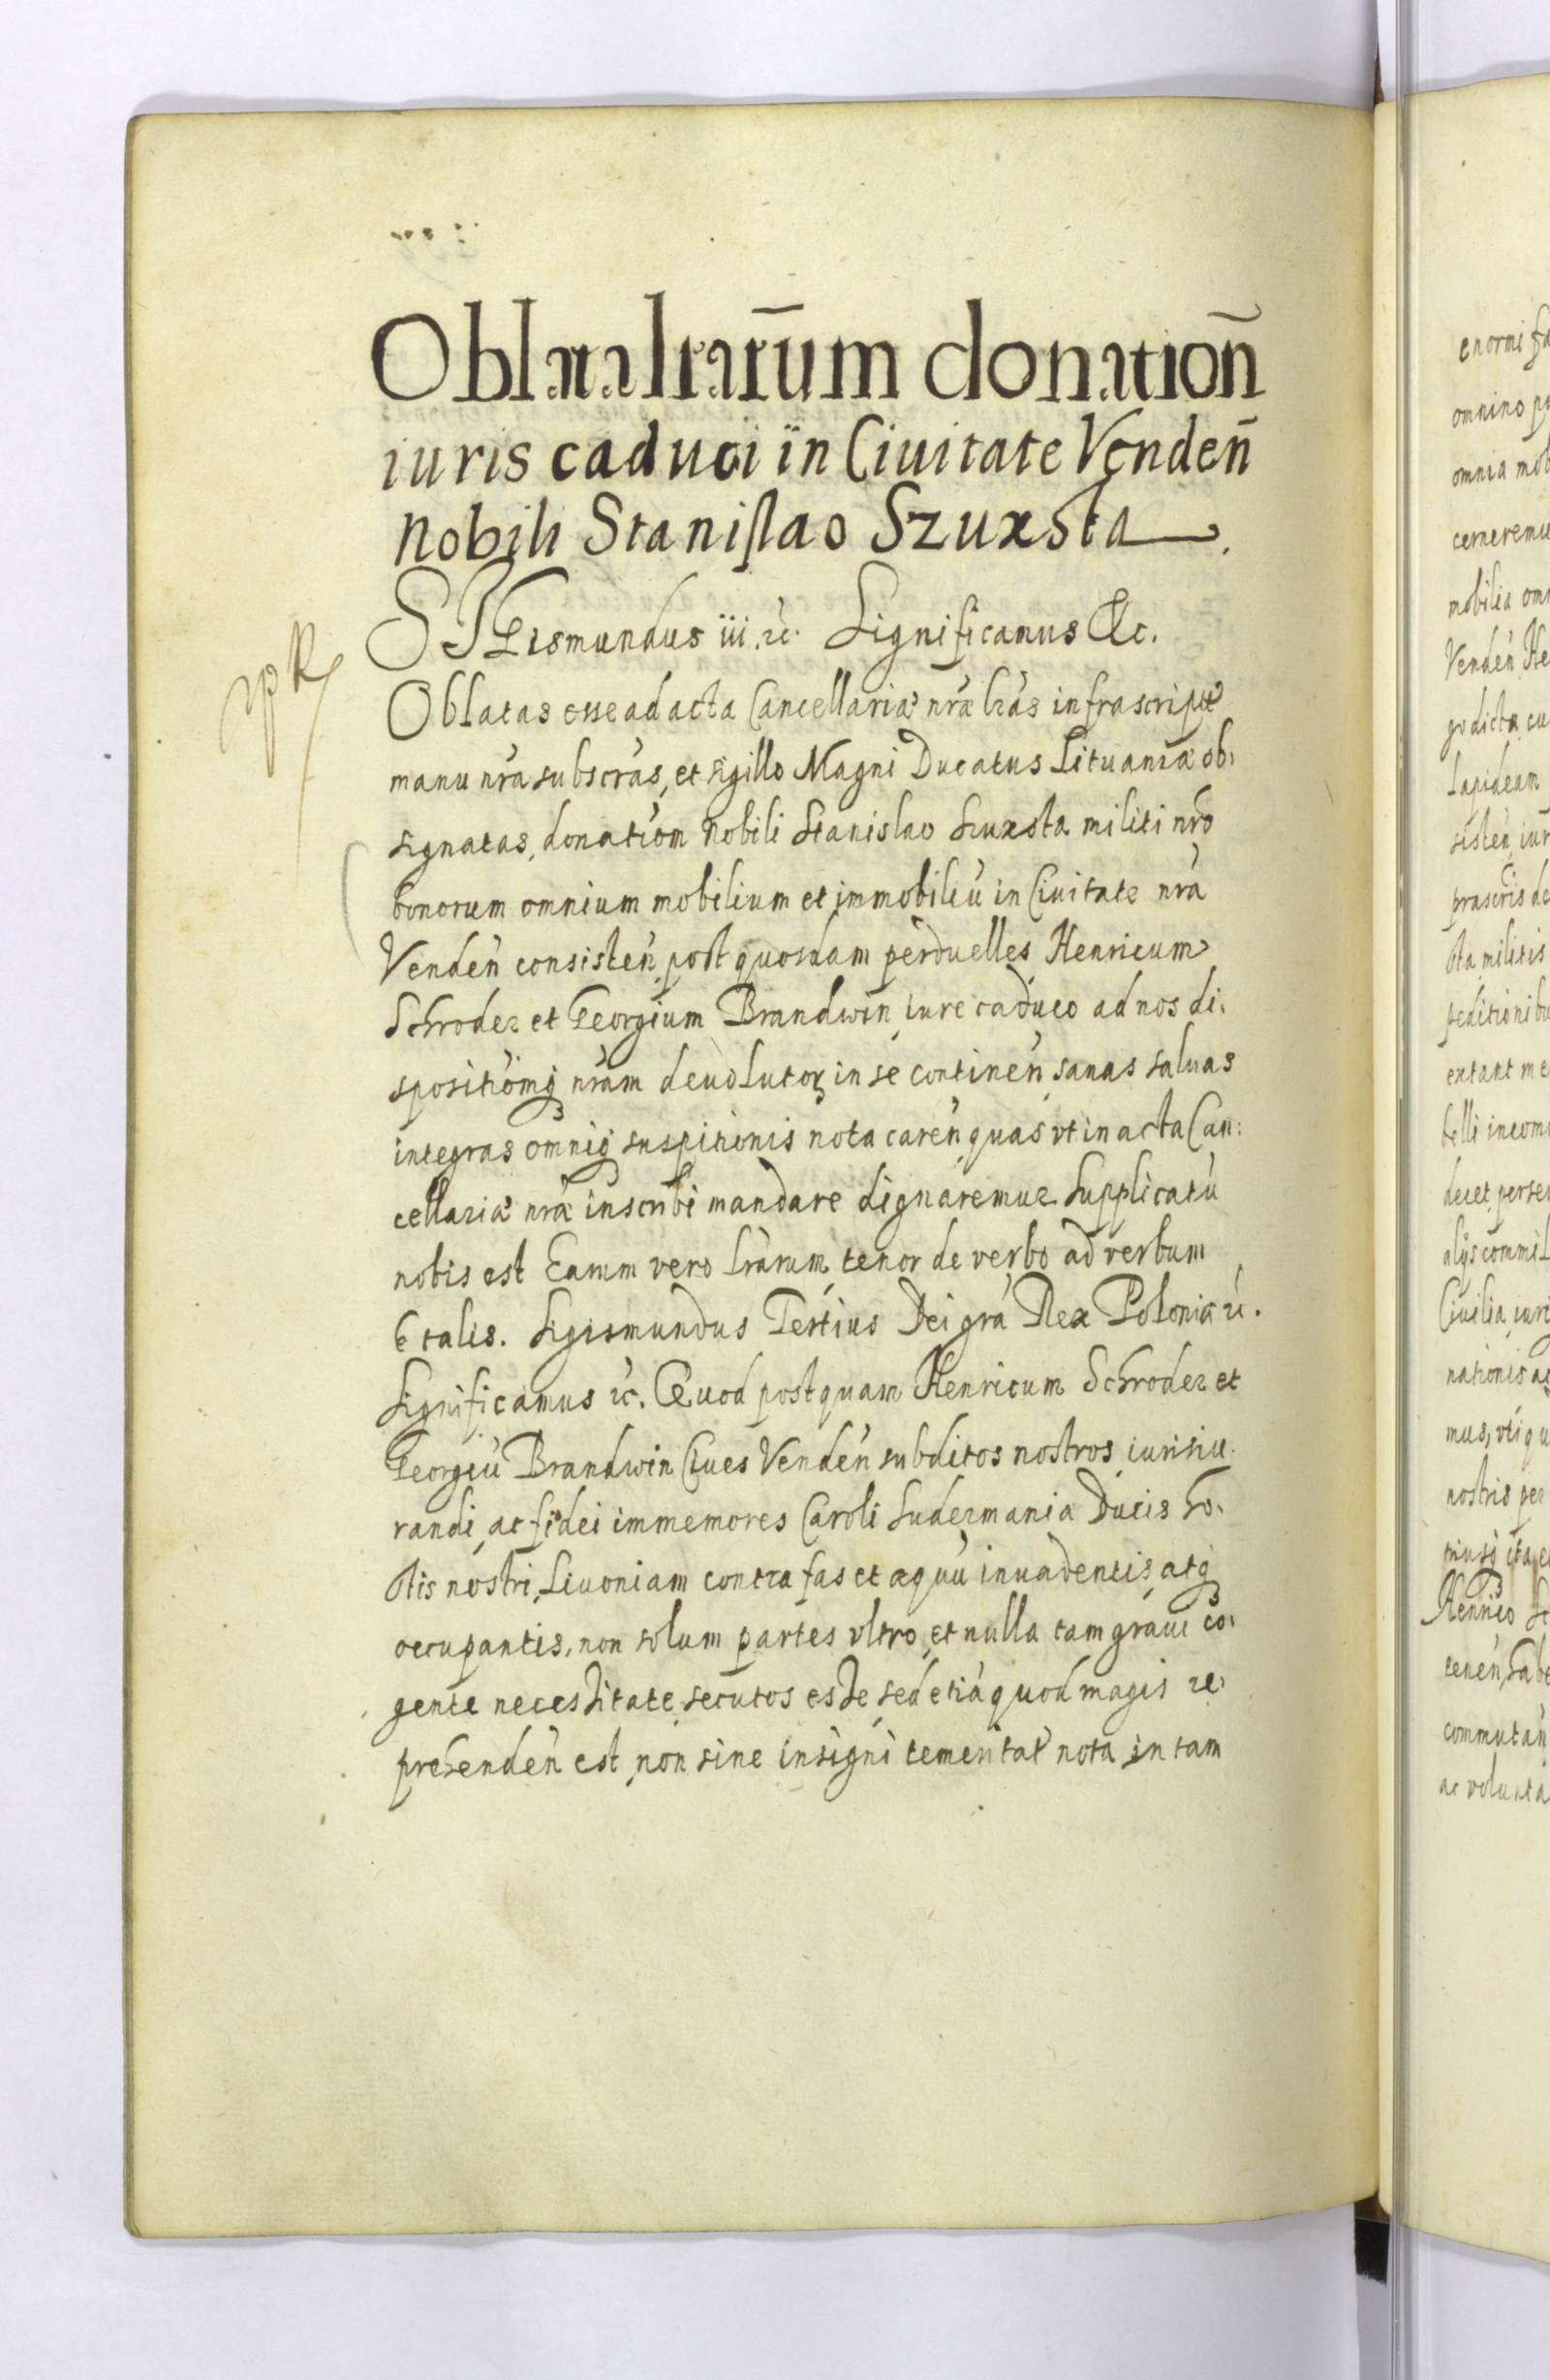 Oblata lrarūm donation̄
iuris caduci in Ciuitate Venden̄
Nobili Stanislao Szuxsta.
SIGismundus iii. etc. Significamus etc.
Oblatas esse ad acta Cancellariæ nr̃æ lr̃as infrascriptas
manu nr̃a subscr̃as, et sigillo Magni Ducatus Lituaniæ ob:
signatas, donatiom Nobili Stanislao Szuxsta militi nr̃o
bonorum omnium mobilium et immobiliũ in Ciuitate nr̃a
Venden̄ consisten̄, post quosdam perduelles Henricum
Schroder et Georgium Brandwin iure caduco ad nos di:
spositiomq nr̃am deuolutoꝝ in se continen̄, sanas saluas
integras omniq suspitionis nota caren̄, quas vt in acta Can:
cellariæ nr̃æ inscribi mandare dignaremur supplicatũ
nobis est Earum vero lr̃arum, tenor de verbo ad verbum
E talis. Sigismundus Tertius Dei gr̃a Rex Poloniæ etc.
Significamus etc. Quod postquam Henricum Schroder et
Georgiũ Brandwin Ciues Venden̄ subditos nostros, iurisiu:
randi, ac fidei immemores Caroli Sudermaniæ Ducis ho:
stis nostri, Liuoniam contra fas et æquũ inuadentis, atq
occupantis, non solum partes vltro, et nulla tam graui co:
gente necessitate, secutos esse, sed etiã quod magis re:
prehenden̄ est, non sine insigni temeritat nota in tam
enormi
omnino
omnia
cerneremu
mobilia
Venden̄
dictæ
Lapideam
sisten̄
præscr̃is
sta, militis
peditionibu
extant
belli
decet,
alijs
Ciuilia,
nationis
mus, vti
nostris
Henrico
tenen̄,
commutan̄
ac volunta